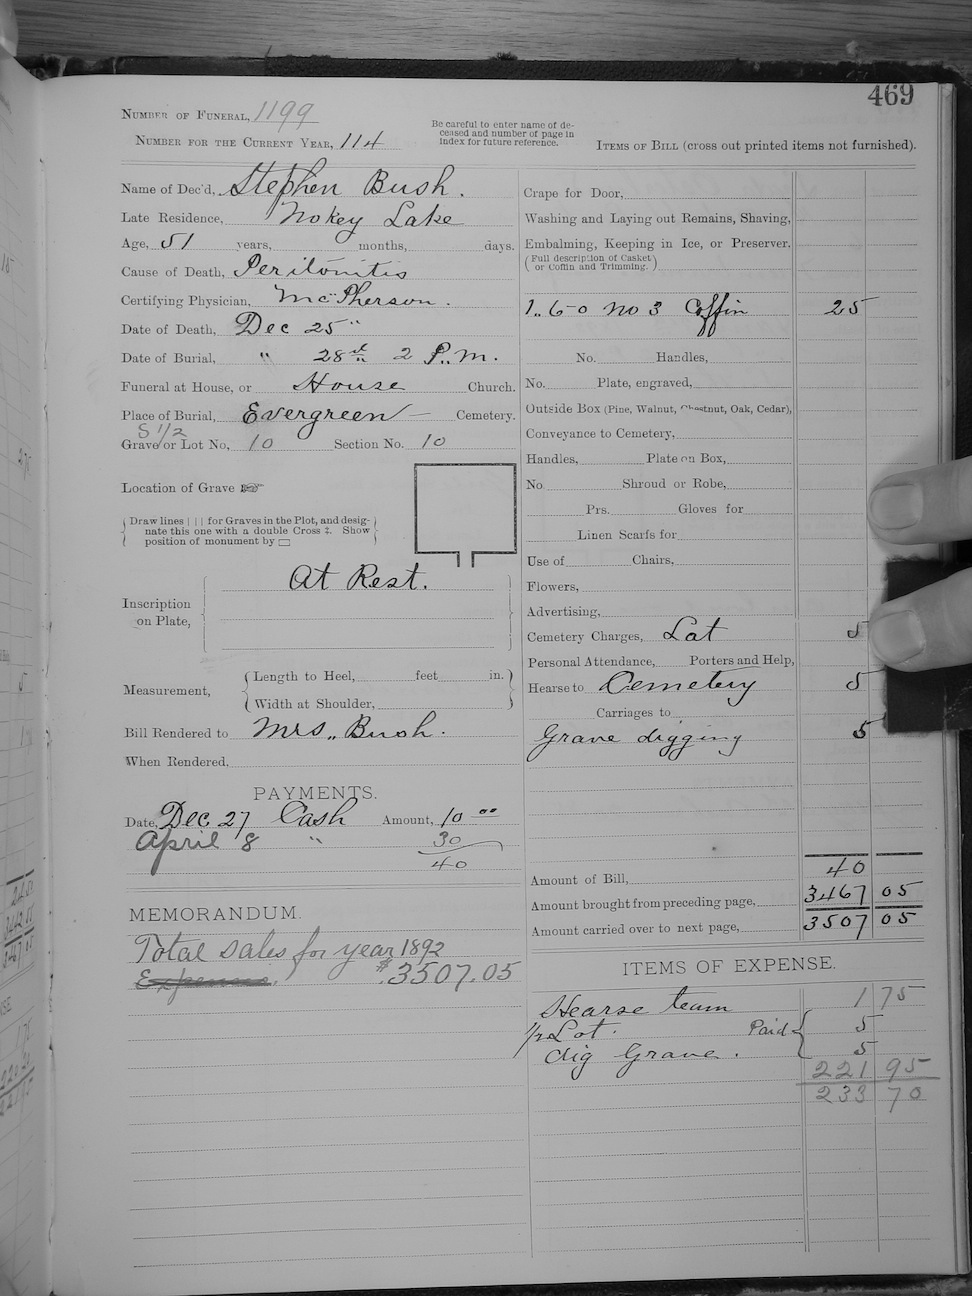 469
Number of Funeral, 1199
Number for the Current Year, 114
Be careful to enter name of de-
ceased and number of page in
index for future reference.
Items of Bill (cross out printed items not furnished).
Name of Dec'd, Stephen Bush.
Late Residence, Nokey Lake
Age, 51 years, months, days.
Cause of Death, Peritonitis
Certifying Physician, McPherson.
Date of Death, Dec 25"
Date of Burial, " 28th 2 P.M.
Funeral at House, or House Church.
Place of Burial, Evergreen Cemetery.
S 1/2
Grave or Lot No, 10 Section No. 10
Location of Grave ☞
Draw lines | | | for Graves in the Plot, and desig-
nate this one with a double Cross ‡. Show
position of monument by ▭
At Rest.
Inscription
on Plate,
Measurement,
Length to Heel, feet in.
Width at Shoulder,
Bill Rendered to Mrs. Bush.
When Rendered,
PAYMENTS.
Date, Dec 27 Cash Amount, 10 00
April 8 " 30
40
MEMORANDUM.
Total Sales for year 1892
Expenses. $3507.05
Crape for Door,
Washing and Laying out Remains, Shaving,
Embalming, Keeping in Ice, or Preserver.
(Full description of Casket
or Coffin and Trimming.)
1.. 6-0 No 3 Coffin 25
No. Handles,
No. Plate, engraved,
Outside Box (Pine, Walnut, Chestnut, Oak, Cedar),
Conveyance to Cemetery,
Handles, Plate on Box,
No. Shroud or Robe,
Prs. Gloves for
Linen Scarfs for
Use of Chairs,
Flowers,
Advertising,
Cemetery Charges, Lot 5
Personal Attendance, Porters and Help,
Hearse to Cemetery 5
Carriages to
Grave digging 5
Amount of Bill, 40
Amount brought from preceding page, 3467 05
Amount carried over to next page, 3507 05
ITEMS OF EXPENSE.
Hearse team 1 75
1/2 Lot. Paid 5
dig Grave. 5
221 95
233 70